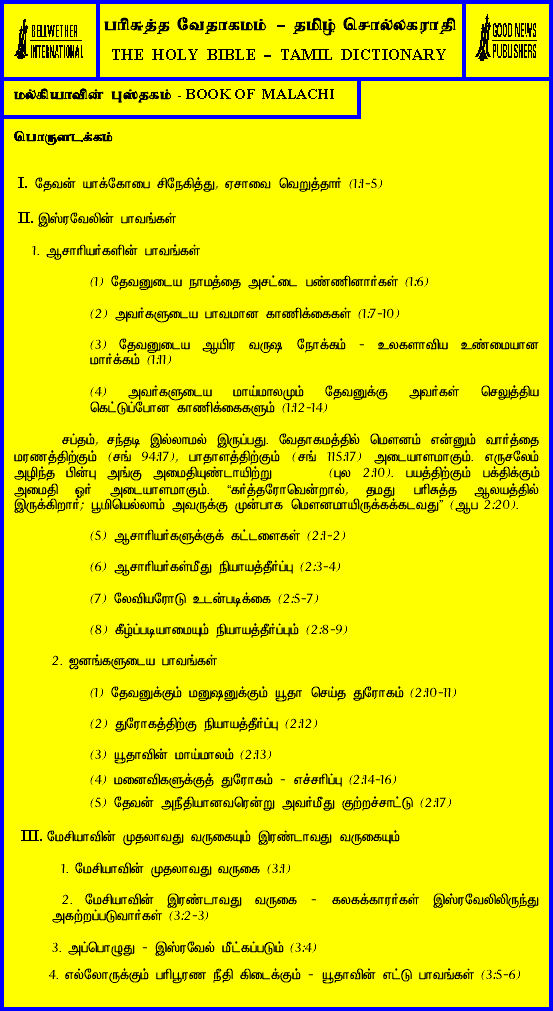 BELLWETHER
INTERNATIONAL
பரிசுத்த வேதாகமம் – தமிழ் சொல்லகராதி
THE HOLY BIBLE – TAMIL DICTIONARY
GOOD NEWS
PUBLISHERS
மல்கியாவின் புஸ்தகம் - BOOK OF MALACHI
பொருளடக்கம்
I. தேவன் யாக்கோபை சிநேகித்து, ஏசாவை வெறுத்தார் (1:1-5)
II. இஸ்ரவேலின் பாவங்கள்
1. ஆசாரியர்களின் பாவங்கள்
(1) தேவனுடைய நாமத்தை அசட்டை பண்ணினார்கள் (1:6)
(2) அவர்களுடைய பாவமான காணிக்கைகள் (1:7-10)
(3) தேவனுடைய ஆயிர வருஷ நோக்கம் - உலகளாவிய உண்மையான
மார்க்கம் (1:11)
(4) அவர்களுடைய மாய்மாலமும் தேவனுக்கு அவர்கள் செலுத்திய
கெட்டுப்போன காணிக்கைகளும் (1:12-14)
சப்தம், சந்தடி இல்லாமல் இருப்பது. வேதாகமத்தில் மௌனம் என்னும் வார்த்தை
மரணத்திற்கும் (சங் 94:17), பாதாளத்திற்கும் (சங் 115:17) அடையாளமாகும். எருசலேம்
அழிந்த பின்பு அங்கு அமைதியுண்டாயிற்று (புல 2:10). பயத்திற்கும் பக்திக்கும்
அமைதி ஓர் அடையாளமாகும். “கர்த்தரோவென்றால், தமது பரிசுத்த ஆலயத்தில்
இருக்கிறார்; பூமியெல்லாம் அவருக்கு முன்பாக மௌனமாயிருக்கக்கடவது” (ஆப 2:20).
(5) ஆசாரியர்களுக்குக் கட்டளைகள் (2:1-2)
(6) ஆசாரியர்கள்மீது நியாயத்தீர்ப்பு (2:3-4)
(7) லேவியரோடு உடன்படிக்கை (2:5-7)
(8) கீழ்ப்படியாமையும் நியாயத்தீர்ப்பும் (2:8-9)
2. ஜனங்களுடைய பாவங்கள்
(1) தேவனுக்கும் மனுஷனுக்கும் யூதா செய்த துரோகம் (2:10-11)
(2) துரோகத்திற்கு நியாயத்தீர்ப்பு (2:12)
(3) யூதாவின் மாய்மாலம் (2:13)
(4) மனைவிகளுக்குத் துரோகம் - எச்சரிப்பு (2:14-16)
(5) தேவன் அநீதியானவரென்று அவர்மீது குற்றச்சாட்டு (2:17)
III. மேசியாவின் முதலாவது வருகையும் இரண்டாவது வருகையும்
1. மேசியாவின் முதலாவது வருகை (3:1)
2. மேசியாவின் இரண்டாவது வருகை - கலகக்காரர்கள் இஸ்ரவேலிலிருந்து
அகற்றப்படுவார்கள் (3:2-3)
3. அப்பொழுது - இஸ்ரவேல் மீட்கப்படும் (3:4)
4. எல்லோருக்கும் பரிபூரண நீதி கிடைக்கும் - யூதாவின் எட்டு பாவங்கள் (3:5-6)